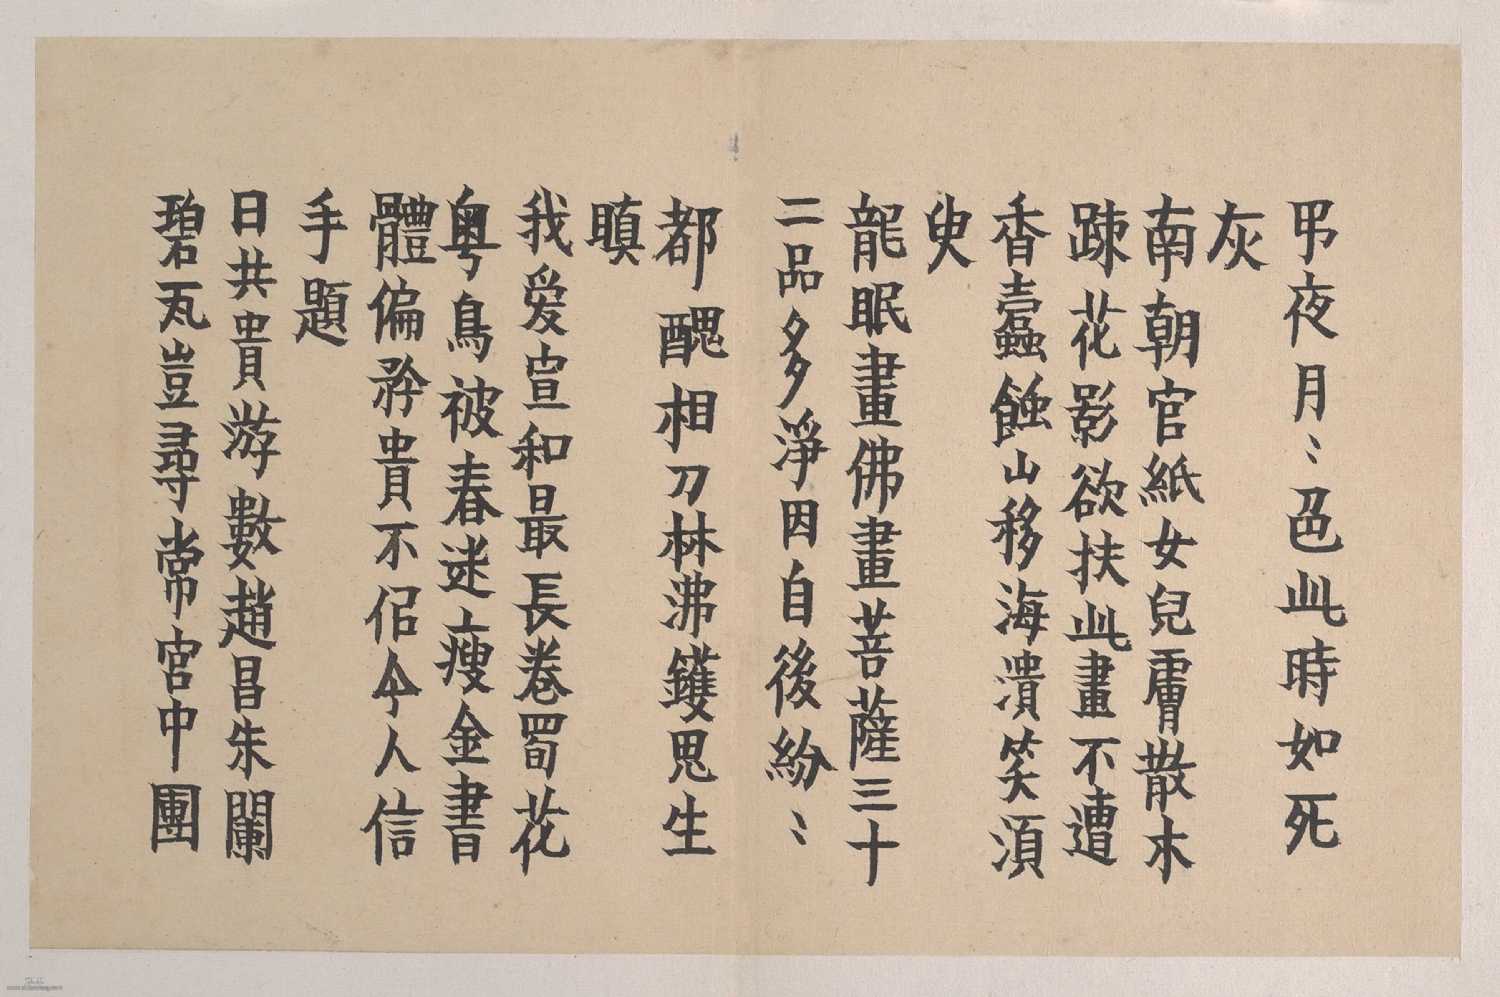 弔夜月〻色此時如死
灰
南朝官紙女兒膚散木
疎花影欲扶此畫不遭
香蠧蝕山移海潰笑須
臾
龍眠畫佛畫菩薩三十
二品多淨因自後紛〻
都醜相刀林沸鑊思生
瞋
我爰宣和最長卷蜀花
粵鳥被春迷瘦金書
體偏矜貴不侶今人信
手題
日共貴游數趙昌朱闌
碧瓦豈尋常宮中團